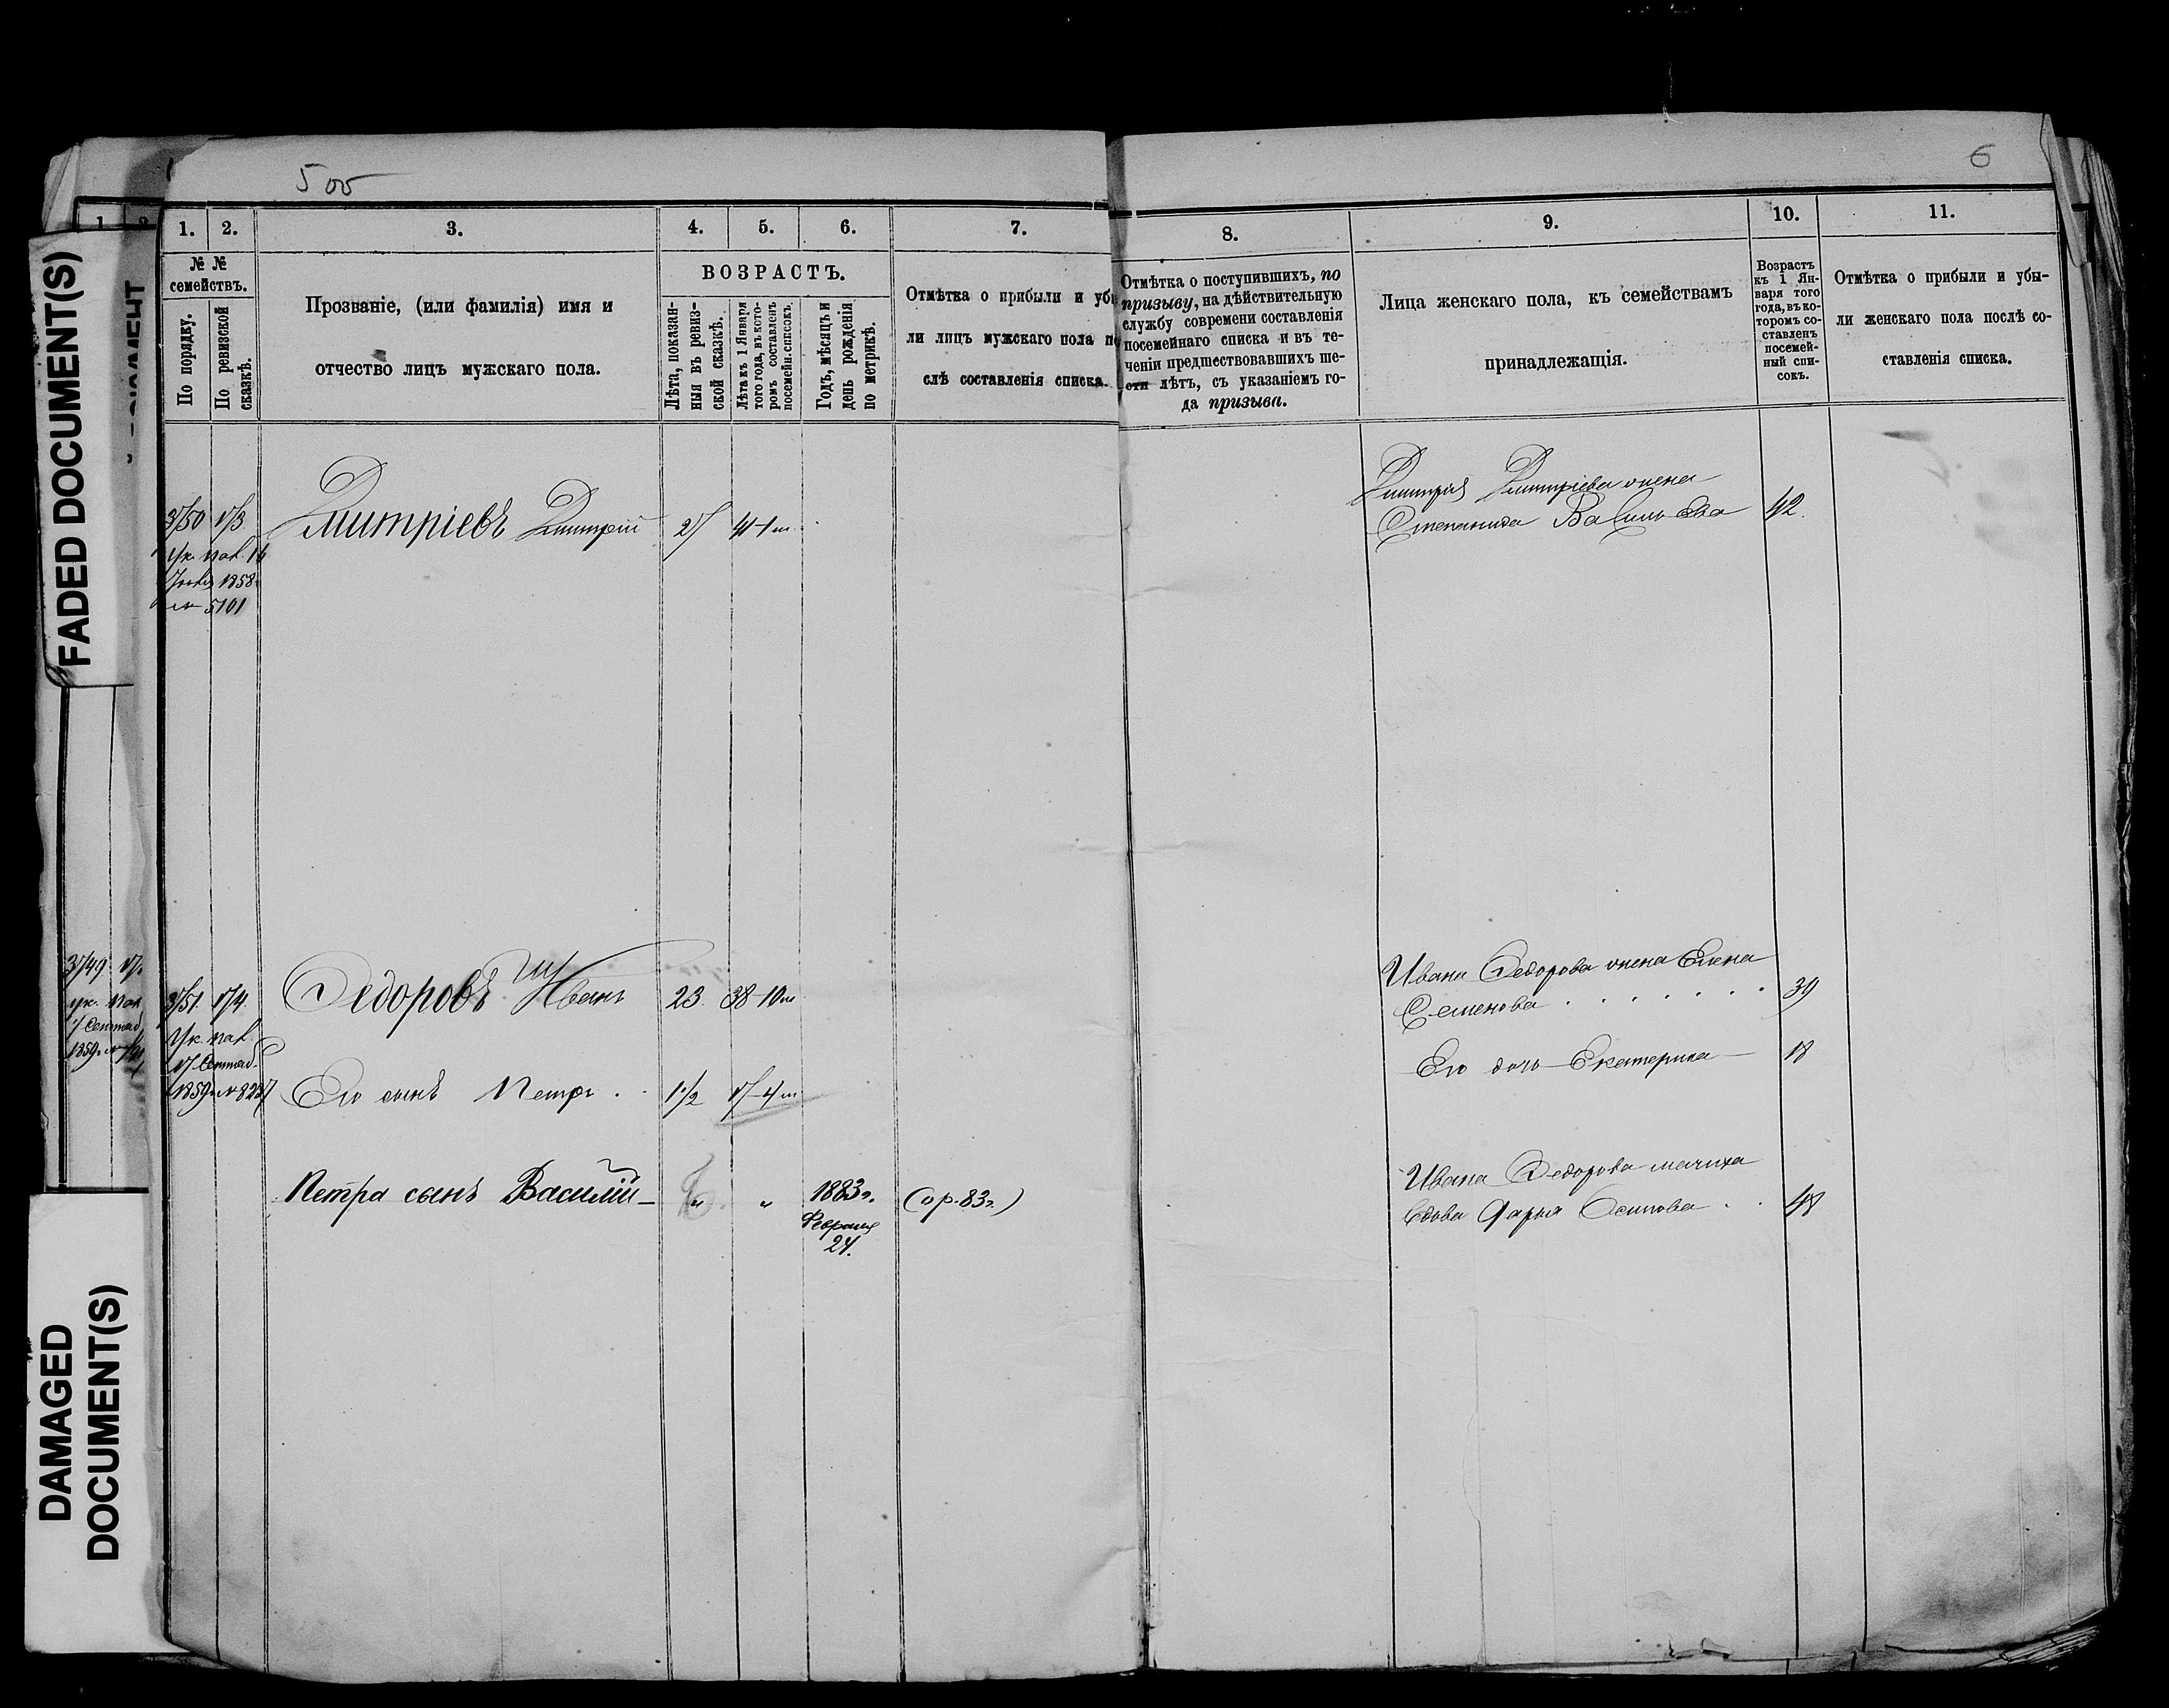 500
6
FADED DOCUMENT(S)
DAMAGED
DOCUMENT(S)
1.
2.
3.
4.
5.
6.
7.
8.
9.
10.
11.
№ №
семействъ.
По порядку.
По ревизской
сказкѣ.
Прозваніе, (или фамилія) имя и
отчество лицъ мужскаго пола.
ВОЗРАСТЪ.
Лѣта, показан-
ныя въ ревиз-
ской сказкѣ.
Лѣта къ 1 Января
того года, въ кото-
ромъ составленъ
посемейн. списокъ.
Годъ, мѣсяцъ и
день рожденія
по метрикѣ.
Отмѣтка о прибыли и убы
ли лицъ мужскаго пола по
слѣ составленія списка.
Отмѣтка о поступившихъ, по
призыву, на дѣйствительную
службу современи составленія
посемейнаго списка и въ те-
ченіи предшествовавшихъ ше-
сти лѣтъ, съ указаніемъ го-
да призыва.
Лица женскаго пола, къ семействамъ
принадлежащія.
Возрастъ
къ 1 Ян-
варя того
года, въ ко-
торомъ со-
ставленъ
посемей-
ный спи-
сокъ.
Отмѣтка о прибыли и убы-
ли женскаго пола послѣ со-
ставленія списка.
Дмитріевъ Дмитрій
41-1м
Дмитрія Дмитріева жена
Степанида Васильева 42.
1858
5101
Федоровъ Иванъ 23. 38-10м
Ивана Федорова жена Елена
Семенова 39
Его дочь Екатерина 18
1859
Его сынъ Петръ 1½
Петра сынъ Василій „ „ 1883г. (ор. 83г.)
Февраля
24.
Ивана Федорова мачиха
вдова Дарья Осипова 48